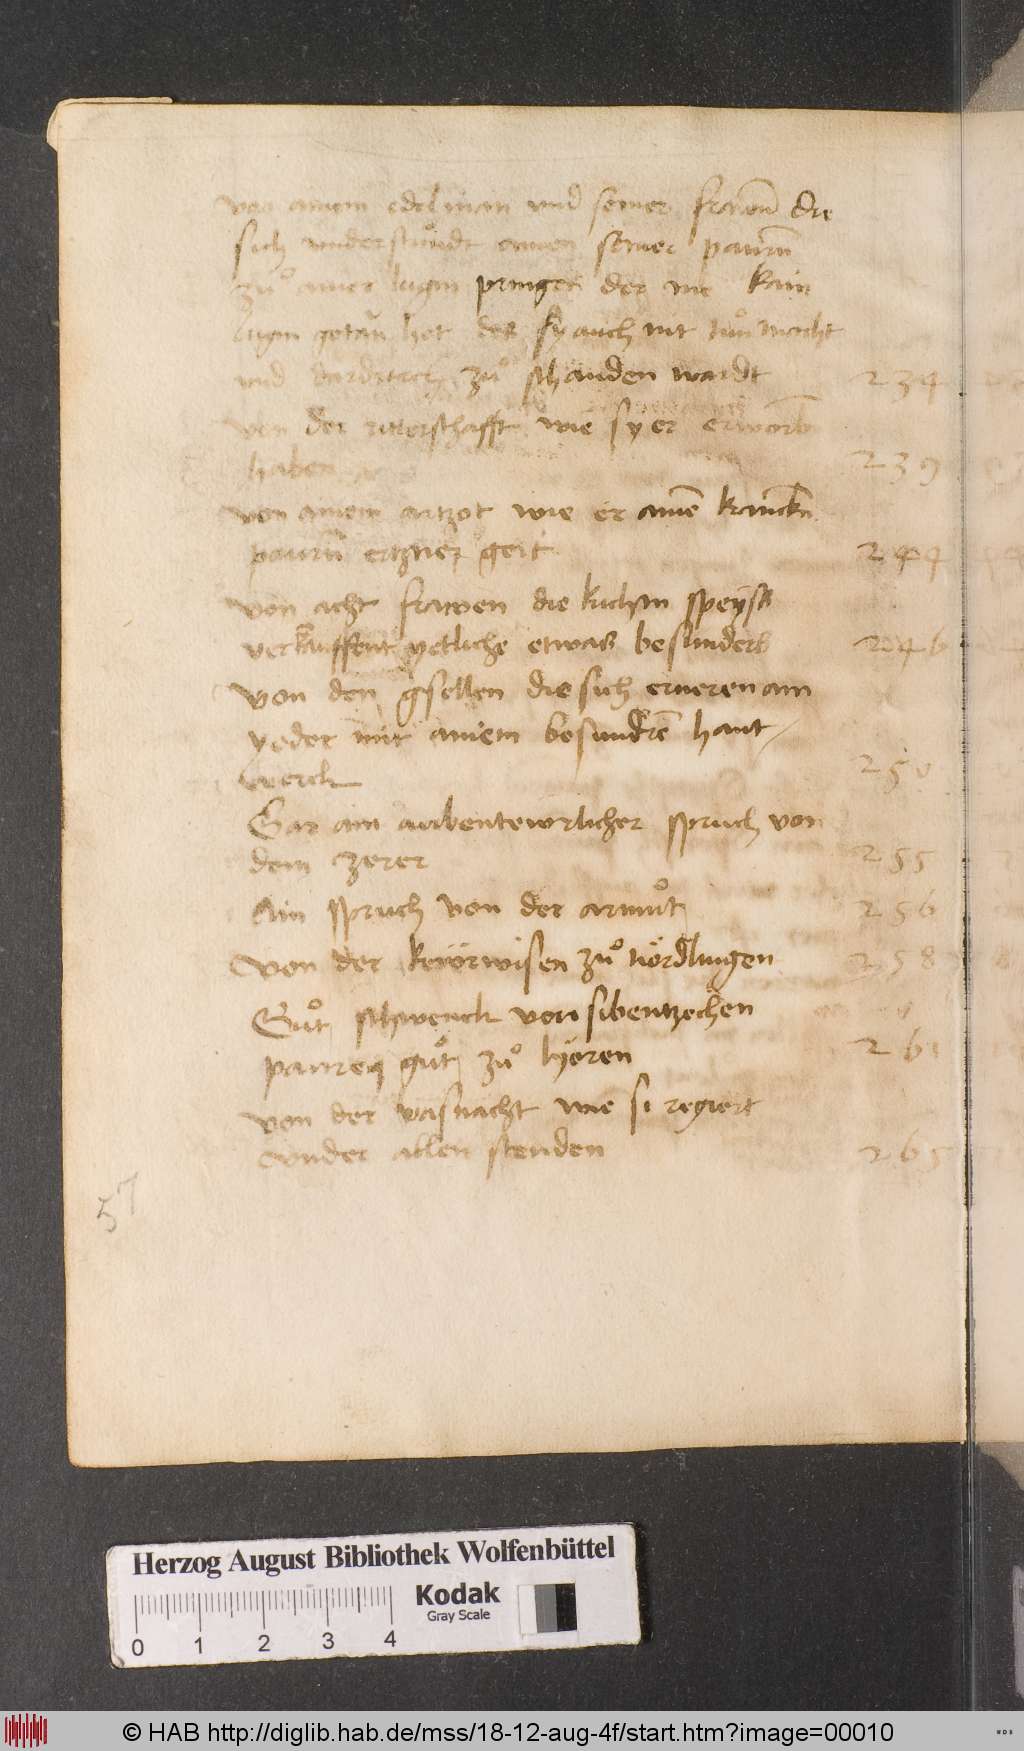 von ainem edelman vnd seiner frawen̄ die
sich vnderstuͦndt ainen seiner paurn̄
zuͦ ainer lugin pringen der nie kain
lugin getan̄ het des sy auch nit tuͦn macht
vnd dardurch zuͦ schanden wardt 234
von der ritterschafft wie sy er erworbn̄
haben 239
von ainem artzot wie er aine͂ krancken
paurn̄ ertzney geit 244
von acht frawen die kuchin speyss
verkauffent yetliche etwas besunders 246
von den gsellen die sich erneren ain
yeder mit ainem besundre͂ hant
werck 250
Gar ain aubentewrlicher spruch von
dem zerer 255
Ain spruch von der armuͦt 256
von der keyörwisen zuͦ nördlingen 258
Guͦt schwenck von sibentzechen
pauren guͦt zuͦ hören 261
von der vasnacht wie si regiert
vnder allen stenden 265
57
Herzog August Bibliothek Wolfenbüttel
Kodak
Gray Scale
0 1 2 3 4
© HAB http://diglib.hab.de/mss/18-12-aug-4f/start.htm?image=00010